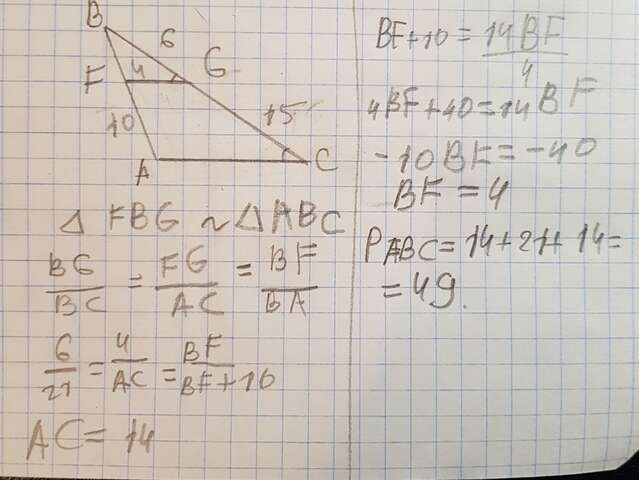 B
6
F 4 G
10
15
A
C
△ FBG ~ △ABC
BG/BC = FG/AC = BF/BA
6/21 = 4/AC = BF/BF+10
AC = 14
BF+10 = 14BF/4
4BF+40=14BF
-10BF=-40
BF = 4
PABC= 14+21+14=
=49.